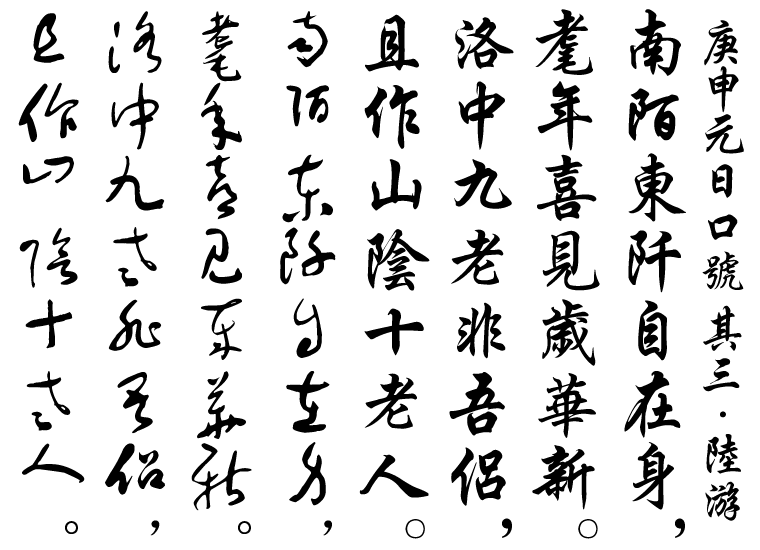 庚申元日口號 其三·陸游
南陌東阡自在身，
耄年喜見歲華新。
洛中九老非吾侶，
且作山陰十老人。
南陌東阡自在身，
耄年喜見歲華新。
洛中九老非吾侶，
且作山陰十老人。